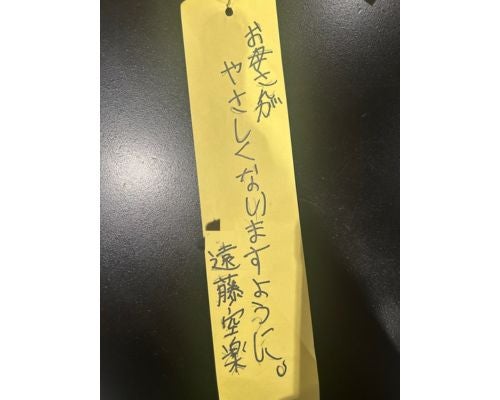 お母さが
やさしくないますように。
遠藤空楽